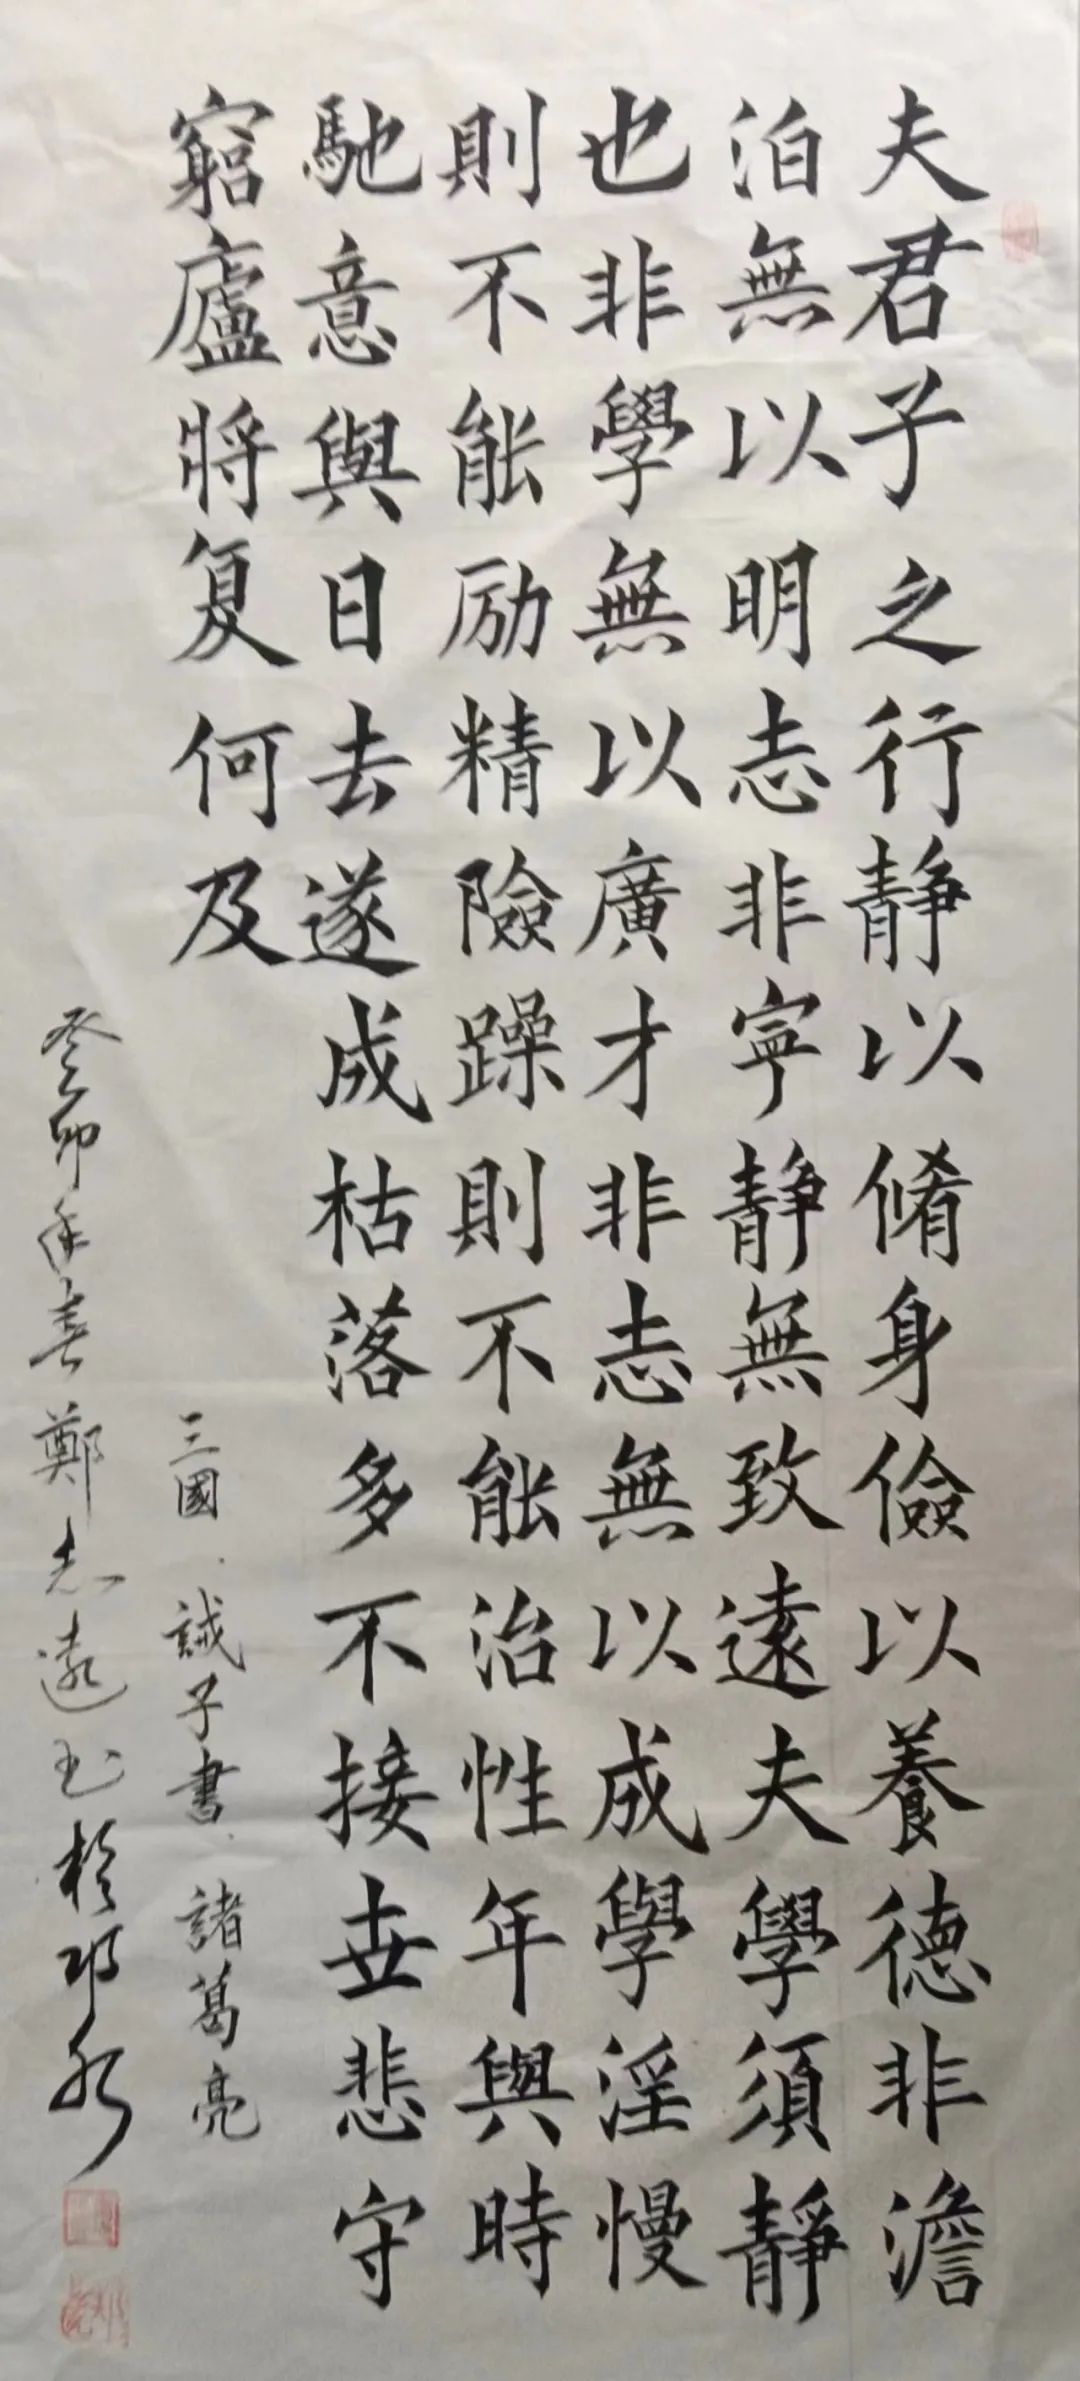 夫君子之行静以脩身儉以養德非澹
泊無以明志非寧静無致遠夫學須静
也非學無以廣才非志無以成學淫慢
則不能励精險躁則不能治性年與時
馳意與日去遂成枯落多不接世悲守
窮廬將复何及
三國·誡子書 諸葛亮
癸卯年春鄭志遠书於邛水